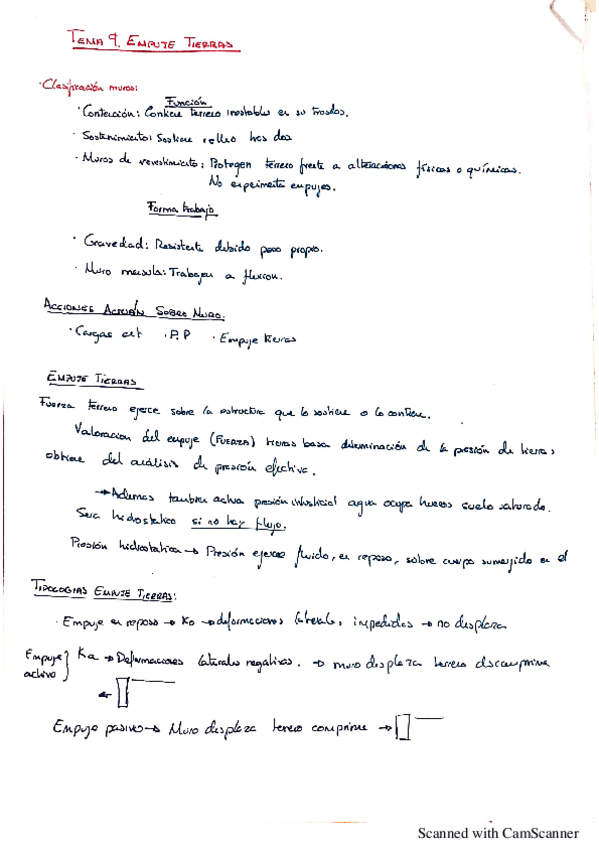 TEMA 9. EMPUJE TIERRAS
· Clasificación muros:
Función
· Contención: Contiene terreno inestables en su trasdós.
· Sostenimiento: Sostiene relleno
· Muros de revestimiento: Protegen terreno frente a alteraciones físicas o químicas.
No experimenta empujes.
Forma trabajo
· Gravedad: Resistente debido peso propio.
· Muro mensula: Trabajan a flexion.
ACCIONES ACTUÁN SOBRE MURO.
· Cargas ext · P.P · Empuje tierras
EMPUJE TIERRAS
Fuerza terreno ejerce sobre la estructura que lo sostiene o lo contiene.
Valoracion del empuje (FUERZA) tierras basa determinación de la presión de tierras
obtiene del análisis de presión efectiva.
→ Ademas tambien actua presión intersticial agua ocupa huecos suelo saturado.
Sera hidrostatico si no hay flujo.
Presión hidrostatica → Presión ejerce fluido, en reposo, sobre cuerpo sumergido en el
TIPOLOGIAS EMPUJE TIERRAS:
· Empuje en reposo → Ko → deformaciones laterales impedidas → no desplaza
Empuje activo } Ka → Deformaciones laterales negativas. → muro desplaza terreno descomprime
Empuje pasivo → Muro desplaza terreno comprime →
Scanned with CamScanner